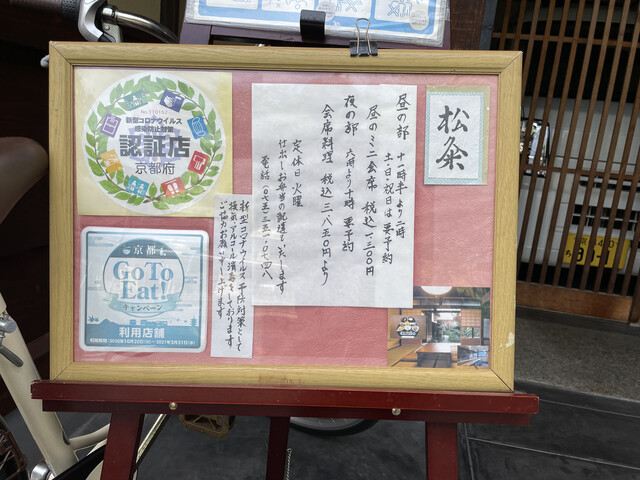 松粂
昼の部 十一時半より二時
土・日・祝日は要予約
昼のミニ会席 税込一、三〇〇円
夜の部 六時より十時 要予約
会席料理 税込三、八五〇円より
定休日 火曜
仕出しお弁当の配達もいたします
電話(〇七五)三五一‐〇七四八
新型コロナウイルス予防対策として
換気・アルコール消毒をしております
ご協力お願い申し上げます
新型コロナウイルス
感染防止対策
認証店
京都府
京都
Go To
Eat!
キャンペーン
利用店舗